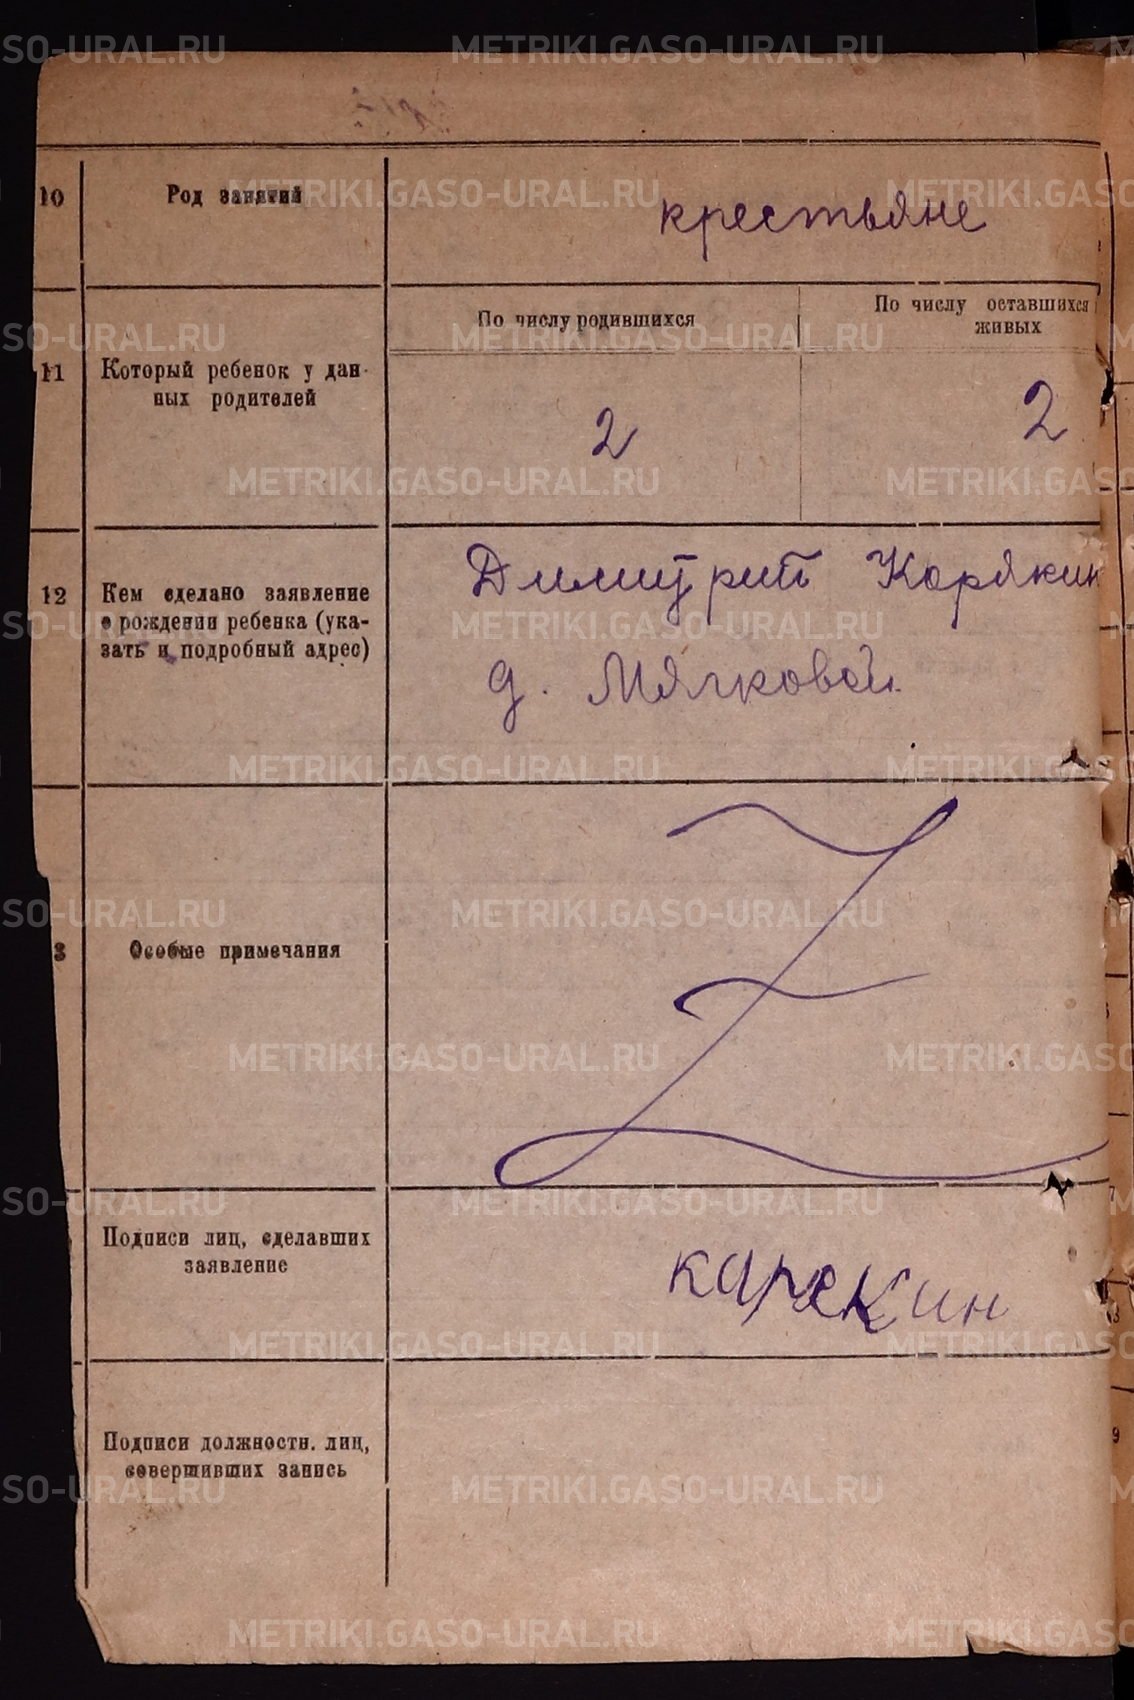 10
Род занятий
крестьяне
11
Который ребенок у дан-
ных родителей
По числу родившихся
По числу оставшихся
живых
2
2
12
Кем сделано заявление
о рождении ребенка (ука-
зать и подробный адрес)
Димитрий Корякин
д. Мягковой
3
Особые примечания
Z
Подписи лиц, сделавших
заявление
карекин
Подписи должностн. лиц,
совершивших запись
METRIKI.GASO-URAL.RU